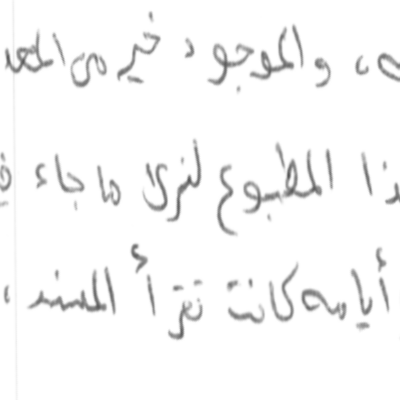 ـه، والموجود خير من المعد
ـذا المطبوع لنرى ما جاء في
أيامه كانت تقرأ المسند،